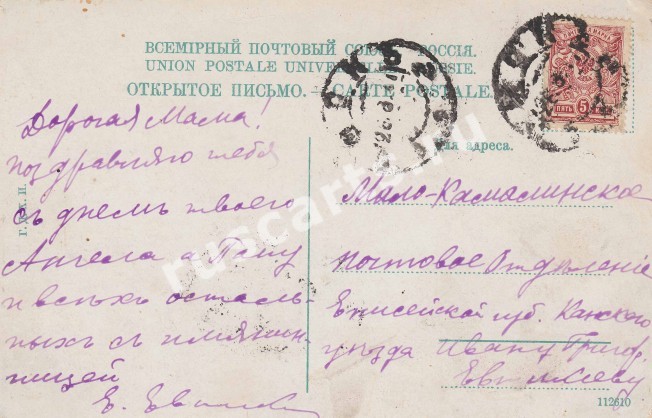 ВСЕМІРНЫЙ ПОЧТОВЫЙ СОЮЗ РОССІЯ.
UNION POSTALE UNIVERSELLE RUSSIE.
ОТКРЫТОЕ ПИСЬМО. — CARTE POSTALE
ПЯТЬ 5
Дорогая Мама!
поздравляю тебя
съ днемъ твоего
Ангела а Папу
и всѣхъ осталь-
ныхъ съ имянин-
ницей
Е.
Для адреса.
Мало-Камалинское
почтовое Отдѣленіе
Енисейской губ. Канского
уѣзда Ивану Григор.
Евтихіеву
112610
ruscarts.ru